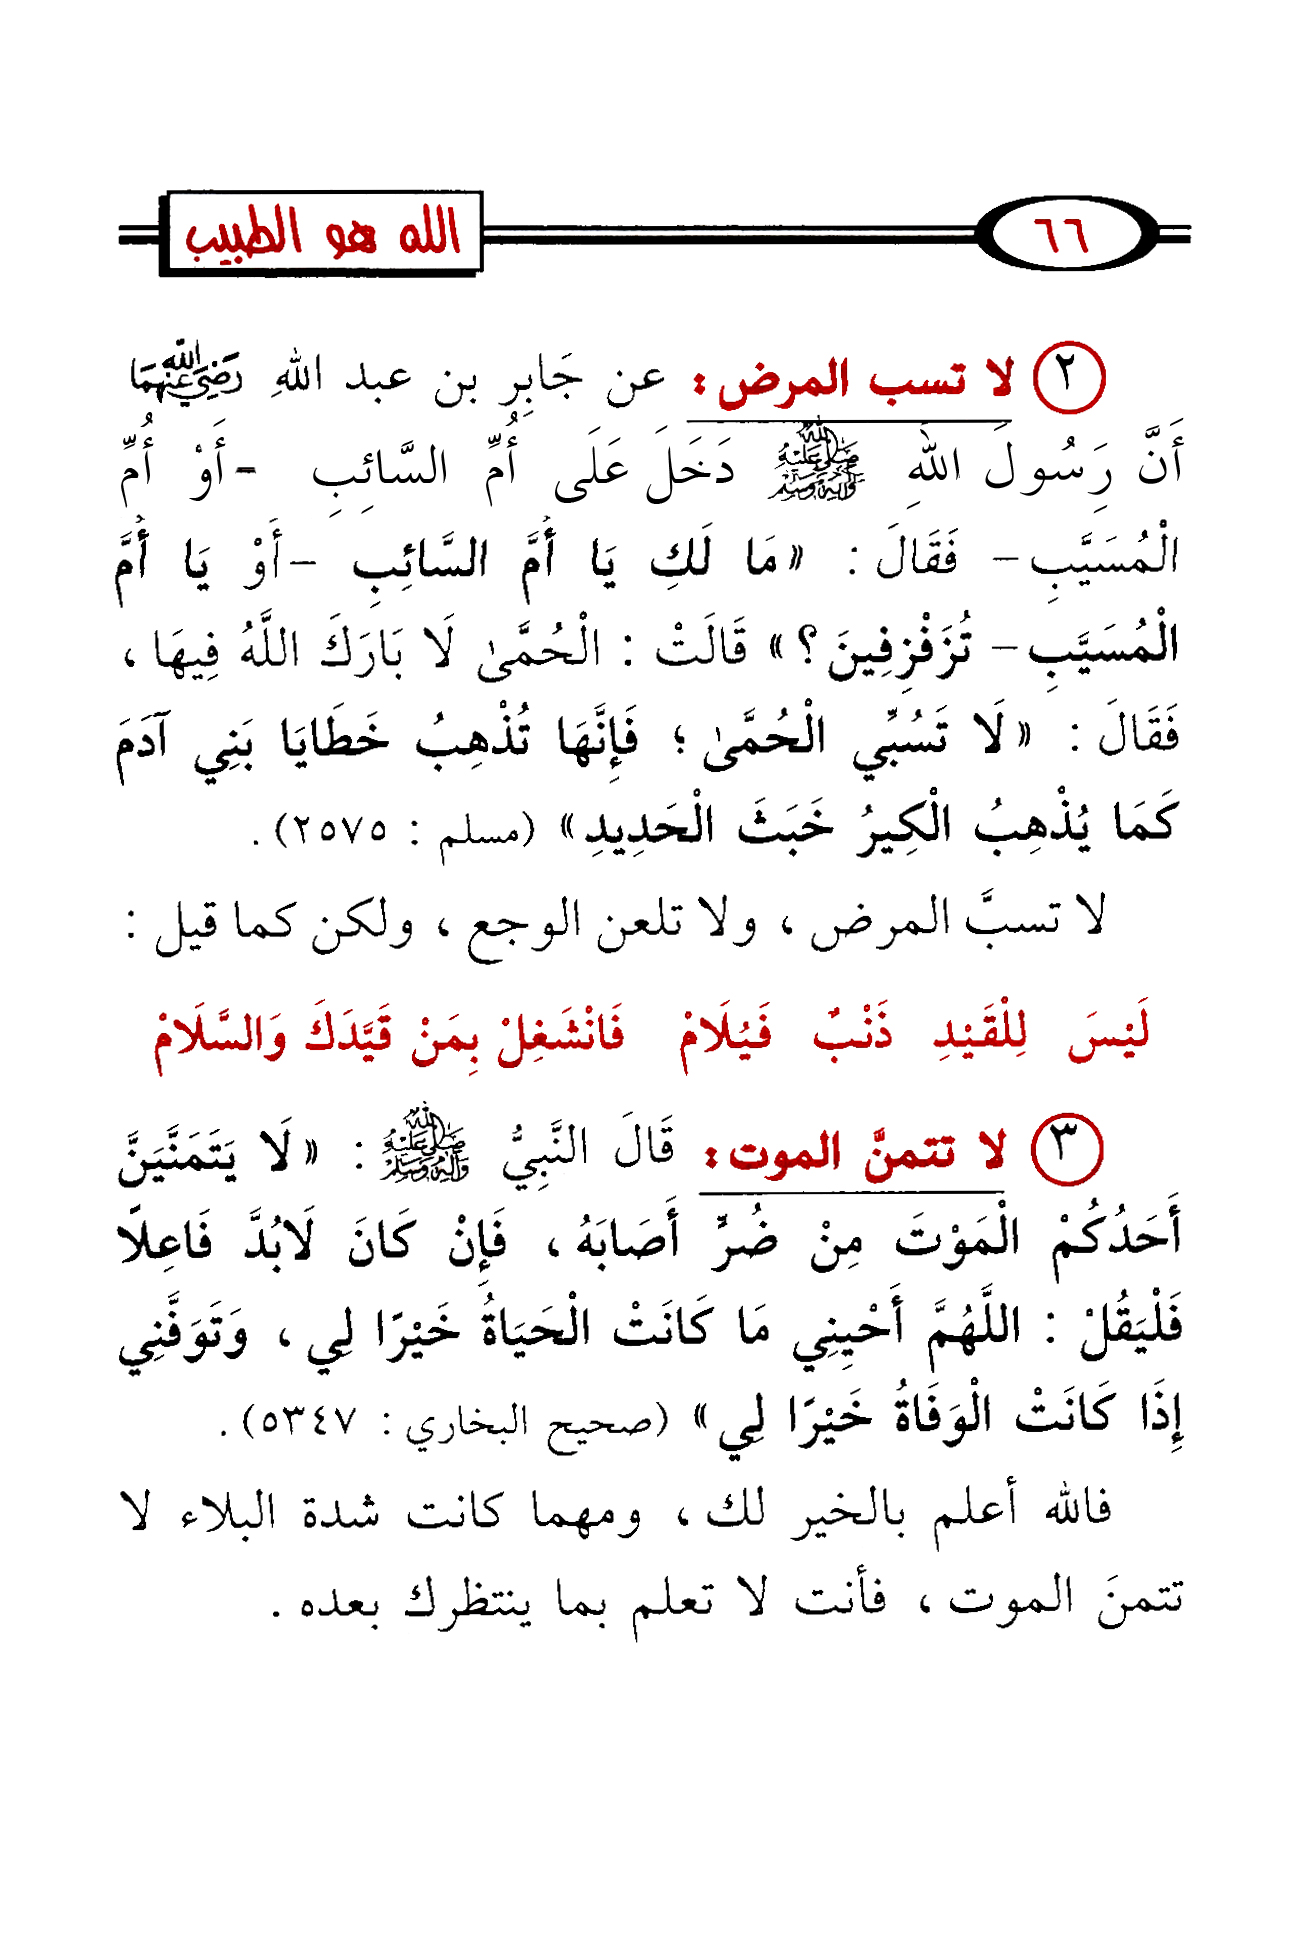 ٦٦
الله هو الطبيب
٢ لا تسب المرض: عن جَابِرِ بن عبد اللهِ رَضِيَ اللَّهُ عَنْهُمَا
أَنَّ رَسُولَ اللهِ صَلَّى اللَّهُ عَلَيْهِ وَآلِهِ وَسَلَّمَ دَخَلَ عَلَى أُمِّ السَّائِبِ -أَوْ أُمِّ
الْمُسَيَّبِ- فَقَالَ: «مَا لَكِ يَا أُمَّ السَّائِبِ -أَوْ يَا أُمَّ
الْمُسَيَّبِ- تُزَفْزِفِينَ؟» قَالَتْ: الْحُمَّىٰ لَا بَارَكَ اللَّهُ فِيهَا،
فَقَالَ: «لَا تَسُبِّي الْحُمَّىٰ؛ فَإِنَّهَا تُذْهِبُ خَطَايَا بَنِي آدَمَ
كَمَا يُذْهِبُ الْكِيرُ خَبَثَ الْحَدِيدِ» (مسلم: ٢٥٧٥).
لا تسبَّ المرض، ولا تلعن الوجع، ولكن كما قيل:
لَيْسَ لِلْقَيْدِ ذَنْبٌ فَيُلَامْ فَانْشَغِلْ بِمَنْ قَيَّدَكَ وَالسَّلَامْ
٣ لا تتمنَّ الموت: قَالَ النَّبِيُّ صَلَّى اللَّهُ عَلَيْهِ وَآلِهِ وَسَلَّمَ: «لَا يَتَمَنَّيَنَّ
أَحَدُكُمْ الْمَوْتَ مِنْ ضُرٍّ أَصَابَهُ، فَإِنْ كَانَ لَابُدَّ فَاعِلًا
فَلْيَقُلْ: اللَّهُمَّ أَحْيِنِي مَا كَانَتْ الْحَيَاةُ خَيْرًا لِي، وَتَوَفَّنِي
إِذَا كَانَتْ الْوَفَاةُ خَيْرًا لِي» (صحيح البخاري: ٥٣٤٧).
فالله أعلم بالخير لك، ومهما كانت شدة البلاء لا
تتمنَ الموت، فأنت لا تعلم بما ينتظرك بعده.